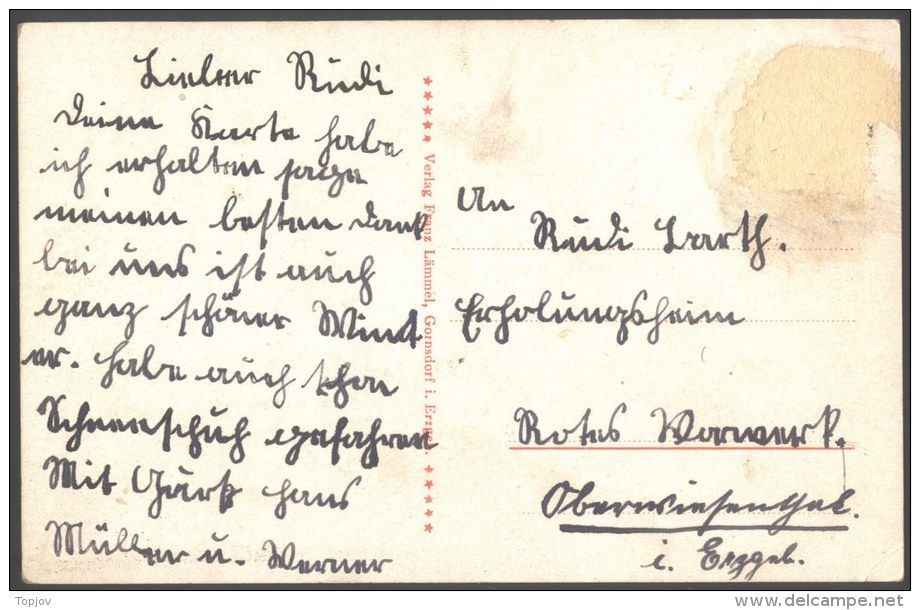 Lieber Rudi
Deine Karte habe
ich erhalten sage
meinen besten Dank
bei uns ist auch
ganz schöner Wint
er. habe auch schon
Schneeschuh gefahren
Mit Hans
Müller u. Werner
***** Verlag Franz Lämmel, Gornsdorf i. Erzgeb. *****
An
Rudi Barth.
Erholungsheim
Rotes Vorwerk.
Oberwiesenthal.
i. Erzgeb.
Topjov
delcampe.net